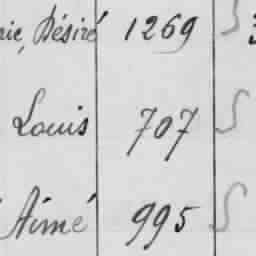 Désiré 1269
Louis 707
Aimé 995